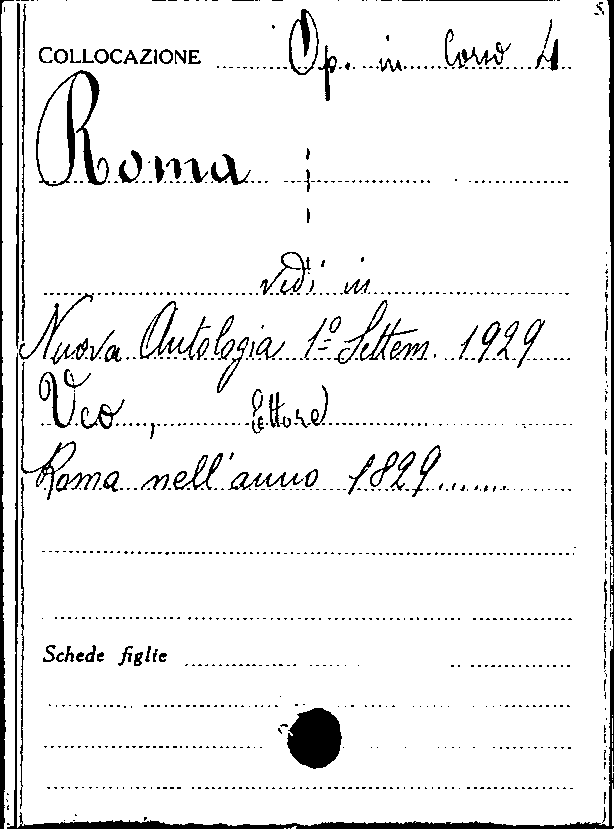 COLLOCAZIONE Op. in Corso 4
Roma
vedi in
Nuova Antologia 1º Settem. 1929
Veo, Ettore
Roma nell'anno 1829.......
Schede figlie